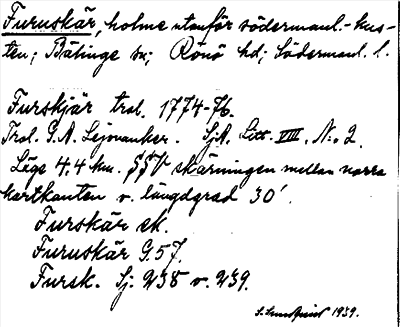 Furuskär, holme utanför södermanl.-kus-
ten; Bälinge sn; Rönö hd; Södermanl. l.
Furskjär trol. 1774-76.
Trol. G.A. Lejonanker. SjA. Litt. VIII, N:o 2.
Läge 4,4 km. SSV skärningen mellan norra
kartkanten v. längdgrad 30'.
Furskär ek.
Furuskär G.57.
Fursk. Sj. 238 v. 239.
1939.